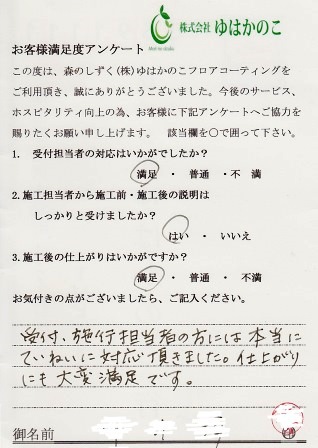 株式会社 ゆはかのこ
お客様満足度アンケート
この度は、森のしずく(株)ゆはかのこフロアコーティングを
ご利用頂き、誠にありがとうございました。今後のサービス、
ホスピタリティ向上の為、お客様に下記アンケートへご協力を
賜りたくお願い申し上げます。 該当欄を〇で囲って下さい。
1. 受付担当者の対応はいかがでしたか?
満足 ・ 普通 ・不 満
2.施工担当者から施工前・施工後の説明は
しっかりと受けましたか?
はい ・ いいえ
3.施工後の仕上がりはいかがですか?
満足 ・ 普通 ・ 不満
お気付きの点がございましたら、ご記入ください。
受付、施行担当者の方には本当に
ていねいに対応頂きました。仕上がり
にも大変満足です。
御名前